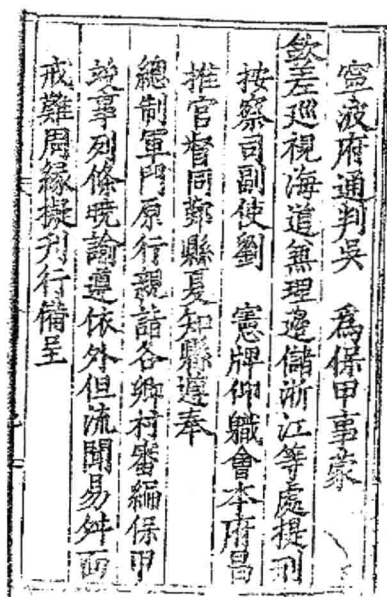 寧波府通判吳　爲保甲事蒙
欽差巡視海道兼理邊儲浙江等處提刑
按察司副使劉　憲牌仰職會本府昌
推官督同鄞縣夏知縣遵奉
總制軍門原行親詣各鄉村審編保甲
竝事列條曉諭遵依外但流聞易舛面
戒難周緣擬刋行備呈